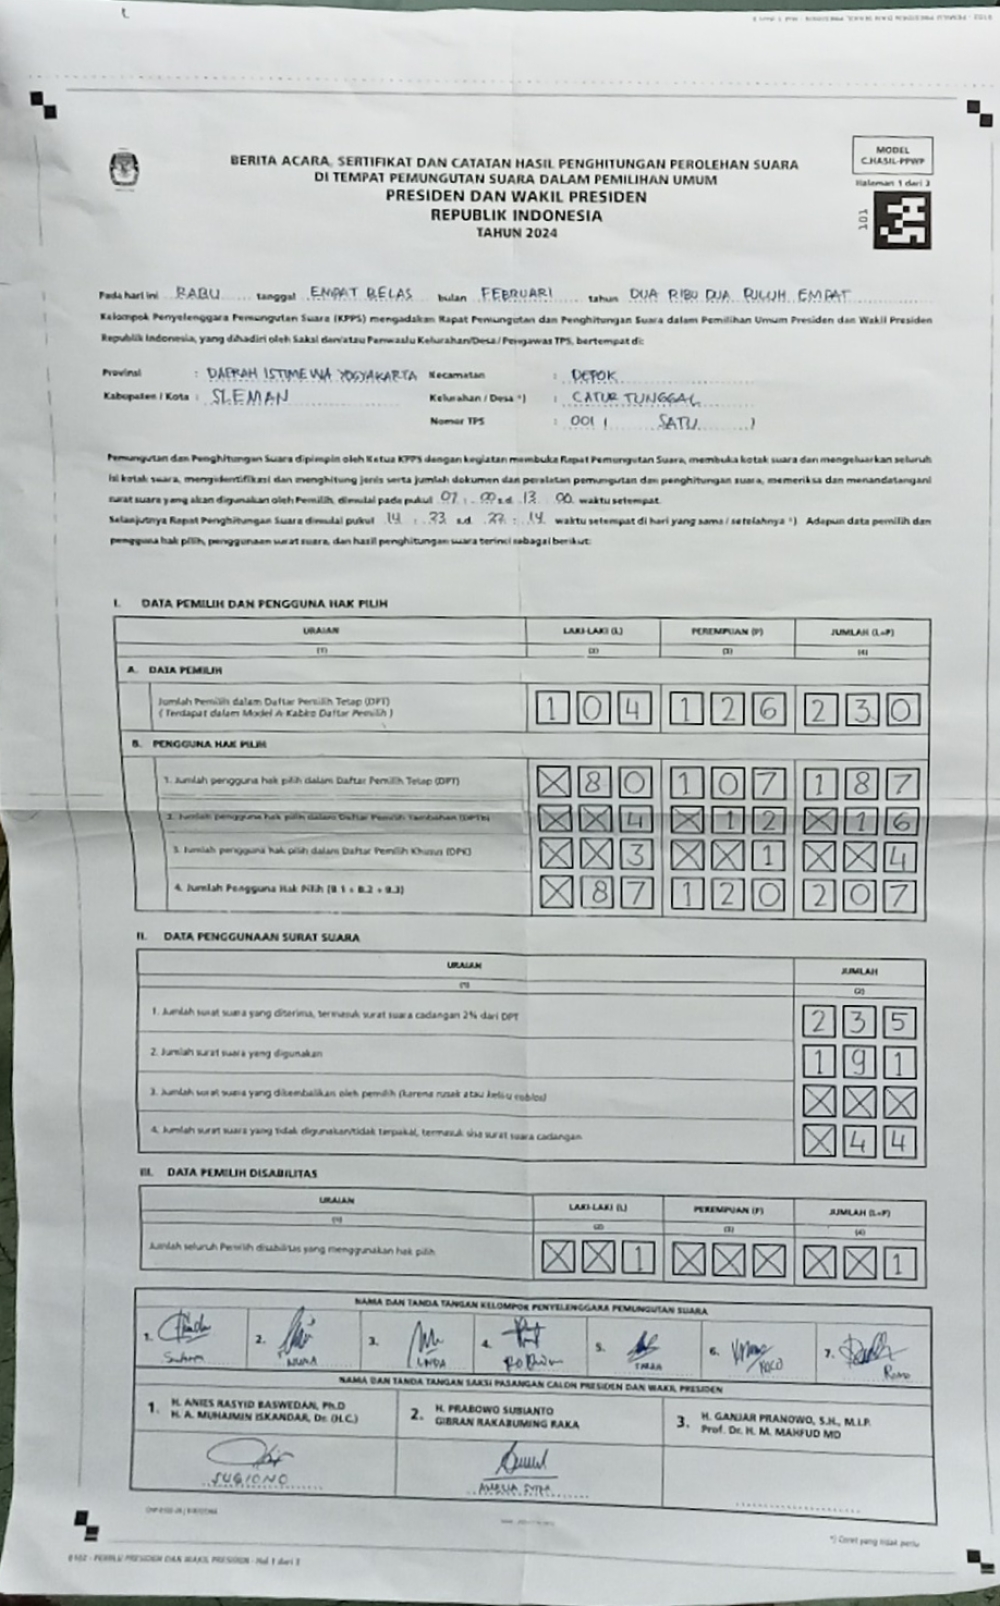 MODEL
C.HASIL-PPWP
Halaman 1 dari 3
101
BERITA ACARA, SERTIFIKAT DAN CATATAN HASIL PENGHITUNGAN PEROLEHAN SUARA
DI TEMPAT PEMUNGUTAN SUARA DALAM PEMILIHAN UMUM
PRESIDEN DAN WAKIL PRESIDEN
REPUBLIK INDONESIA
TAHUN 2024
Pada hari ini RABU tanggal EMPAT BELAS bulan FEBRUARI tahun DUA RIBU DUA PULUH EMPAT
Kelompok Penyelenggara Pemungutan Suara (KPPS) mengadakan Rapat Pemungutan dan Penghitungan Suara dalam Pemilihan Umum Presiden dan Wakil Presiden
Republik Indonesia, yang dihadiri oleh Saksi dan/atau Panwaslu Kelurahan/Desa/Pengawas TPS, bertempat di:
Provinsi : DAERAH ISTIMEWA YOGYAKARTA Kecamatan : DEPOK
Kabupaten / Kota : SLEMAN Kelurahan / Desa *) : CATUR TUNGGAL
Nomor TPS : 001 ( SATU )
Pemungutan dan Penghitungan Suara dipimpin oleh Ketua KPPS dengan kegiatan membuka Rapat Pemungutan Suara, membuka kotak suara dan mengeluarkan seluruh
isi kotak suara, mengidentifikasi dan menghitung jenis serta jumlah dokumen dan peralatan pemungutan dan penghitungan suara, memeriksa dan menandatangani
surat suara yang akan digunakan oleh Pemilih, dimulai pada pukul 07 : 00 s.d. 13 00 waktu setempat.
Selanjutnya Rapat Penghitungan Suara dimulai pukul 14 : 23 s.d. 22 : 14 waktu setempat di hari yang sama / setelahnya *) Adapun data pemilih dan
pengguna hak pilih, penggunaan surat suara, dan hasil penghitungan suara terinci sebagai berikut:
I. DATA PEMILIH DAN PENGGUNA HAK PILIH
URAIAN LAKI-LAKI (L) PEREMPUAN (P) JUMLAH (L+P)
(1) (2) (3) (4)
A. DATA PEMILIH
Jumlah Pemilih dalam Daftar Pemilih Tetap (DPT)
( Terdapat dalam Model A-Kabko Daftar Pemilih ) 104 126 230
B. PENGGUNA HAK PILIH
1. Jumlah pengguna hak pilih dalam Daftar Pemilih Tetap (DPT) X80 107 187
2. Jumlah pengguna hak pilih dalam Daftar Pemilih Tambahan (DPTb) XX4 X12 X16
3. Jumlah pengguna hak pilih dalam Daftar Pemilih Khusus (DPK) XX3 XX1 XX4
4. Jumlah Pengguna Hak Pilih (B.1 + B.2 + B.3) X87 120 207
II. DATA PENGGUNAAN SURAT SUARA
URAIAN JUMLAH
(1) (2)
1. Jumlah surat suara yang diterima, termasuk surat suara cadangan 2% dari DPT 235
2. Jumlah surat suara yang digunakan 191
3. Jumlah surat suara yang dikembalikan oleh pemilih (karena rusak atau keliru coblos) XXX
4. Jumlah surat suara yang tidak digunakan/tidak terpakai, termasuk sisa surat suara cadangan X44
III. DATA PEMILIH DISABILITAS
URAIAN LAKI-LAKI (L) PEREMPUAN (P) JUMLAH (L+P)
(1) (2) (3) (4)
Jumlah seluruh Pemilih disabilitas yang menggunakan hak pilih XX1 XXX XX1
NAMA DAN TANDA TANGAN KELOMPOK PENYELENGGARA PEMUNGUTAN SUARA
1. 2. 3. 4. 5. 6. 7.
LINDA YOCO
NAMA DAN TANDA TANGAN SAKSI PASANGAN CALON PRESIDEN DAN WAKIL PRESIDEN
1. H. ANIES RASYID BASWEDAN, Ph.D
H. A. MUHAIMIN ISKANDAR, Dr. (H.C.)
2. H. PRABOWO SUBIANTO
GIBRAN RAKABUMING RAKA
3. H. GANJAR PRANOWO, S.H., M.I.P.
Prof. Dr. H. M. MAHFUD MD
SUGIONO
*) Coret yang tidak perlu
0102 - PEMILU PRESIDEN DAN WAKIL PRESIDEN - Hal 1 dari 3